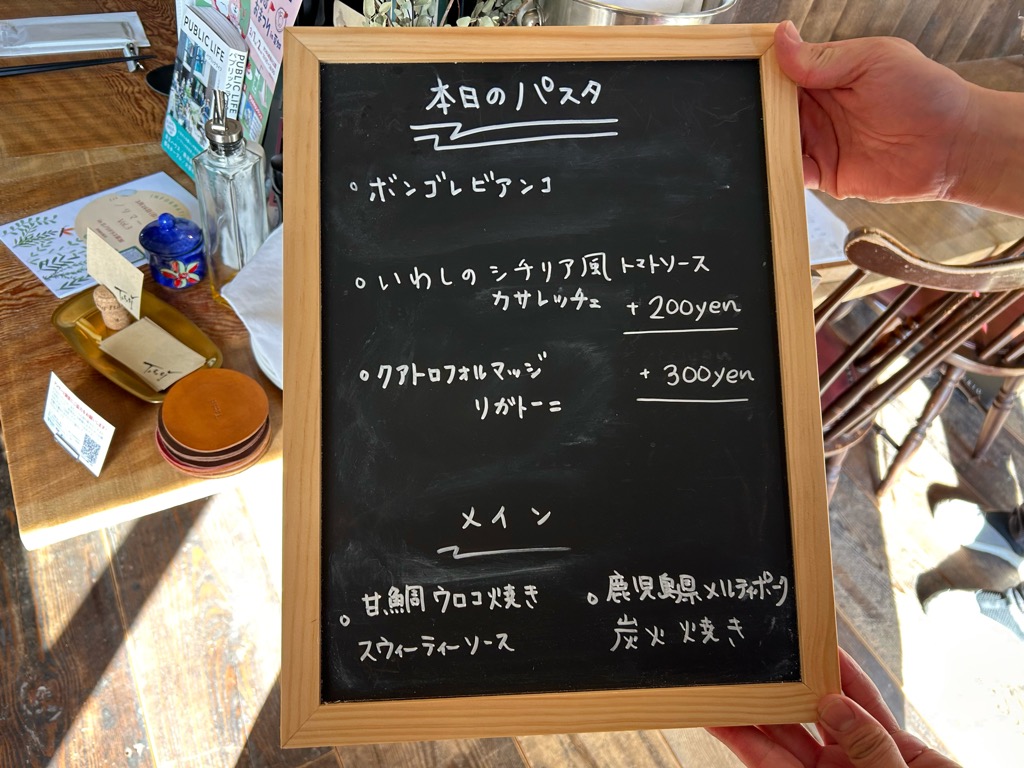 本日のパスタ
ボンゴレビアンコ
いわしのシチリア風トマトソース
カサレッチェ +200yen
クアトロフォルマッジ +300yen
リガトーニ
メイン
甘鯛ウロコ焼き
スウィーティーソース
鹿児島県メルティポーク
炭火焼き
PUBLIC LIFE
PUBLIC LIFE